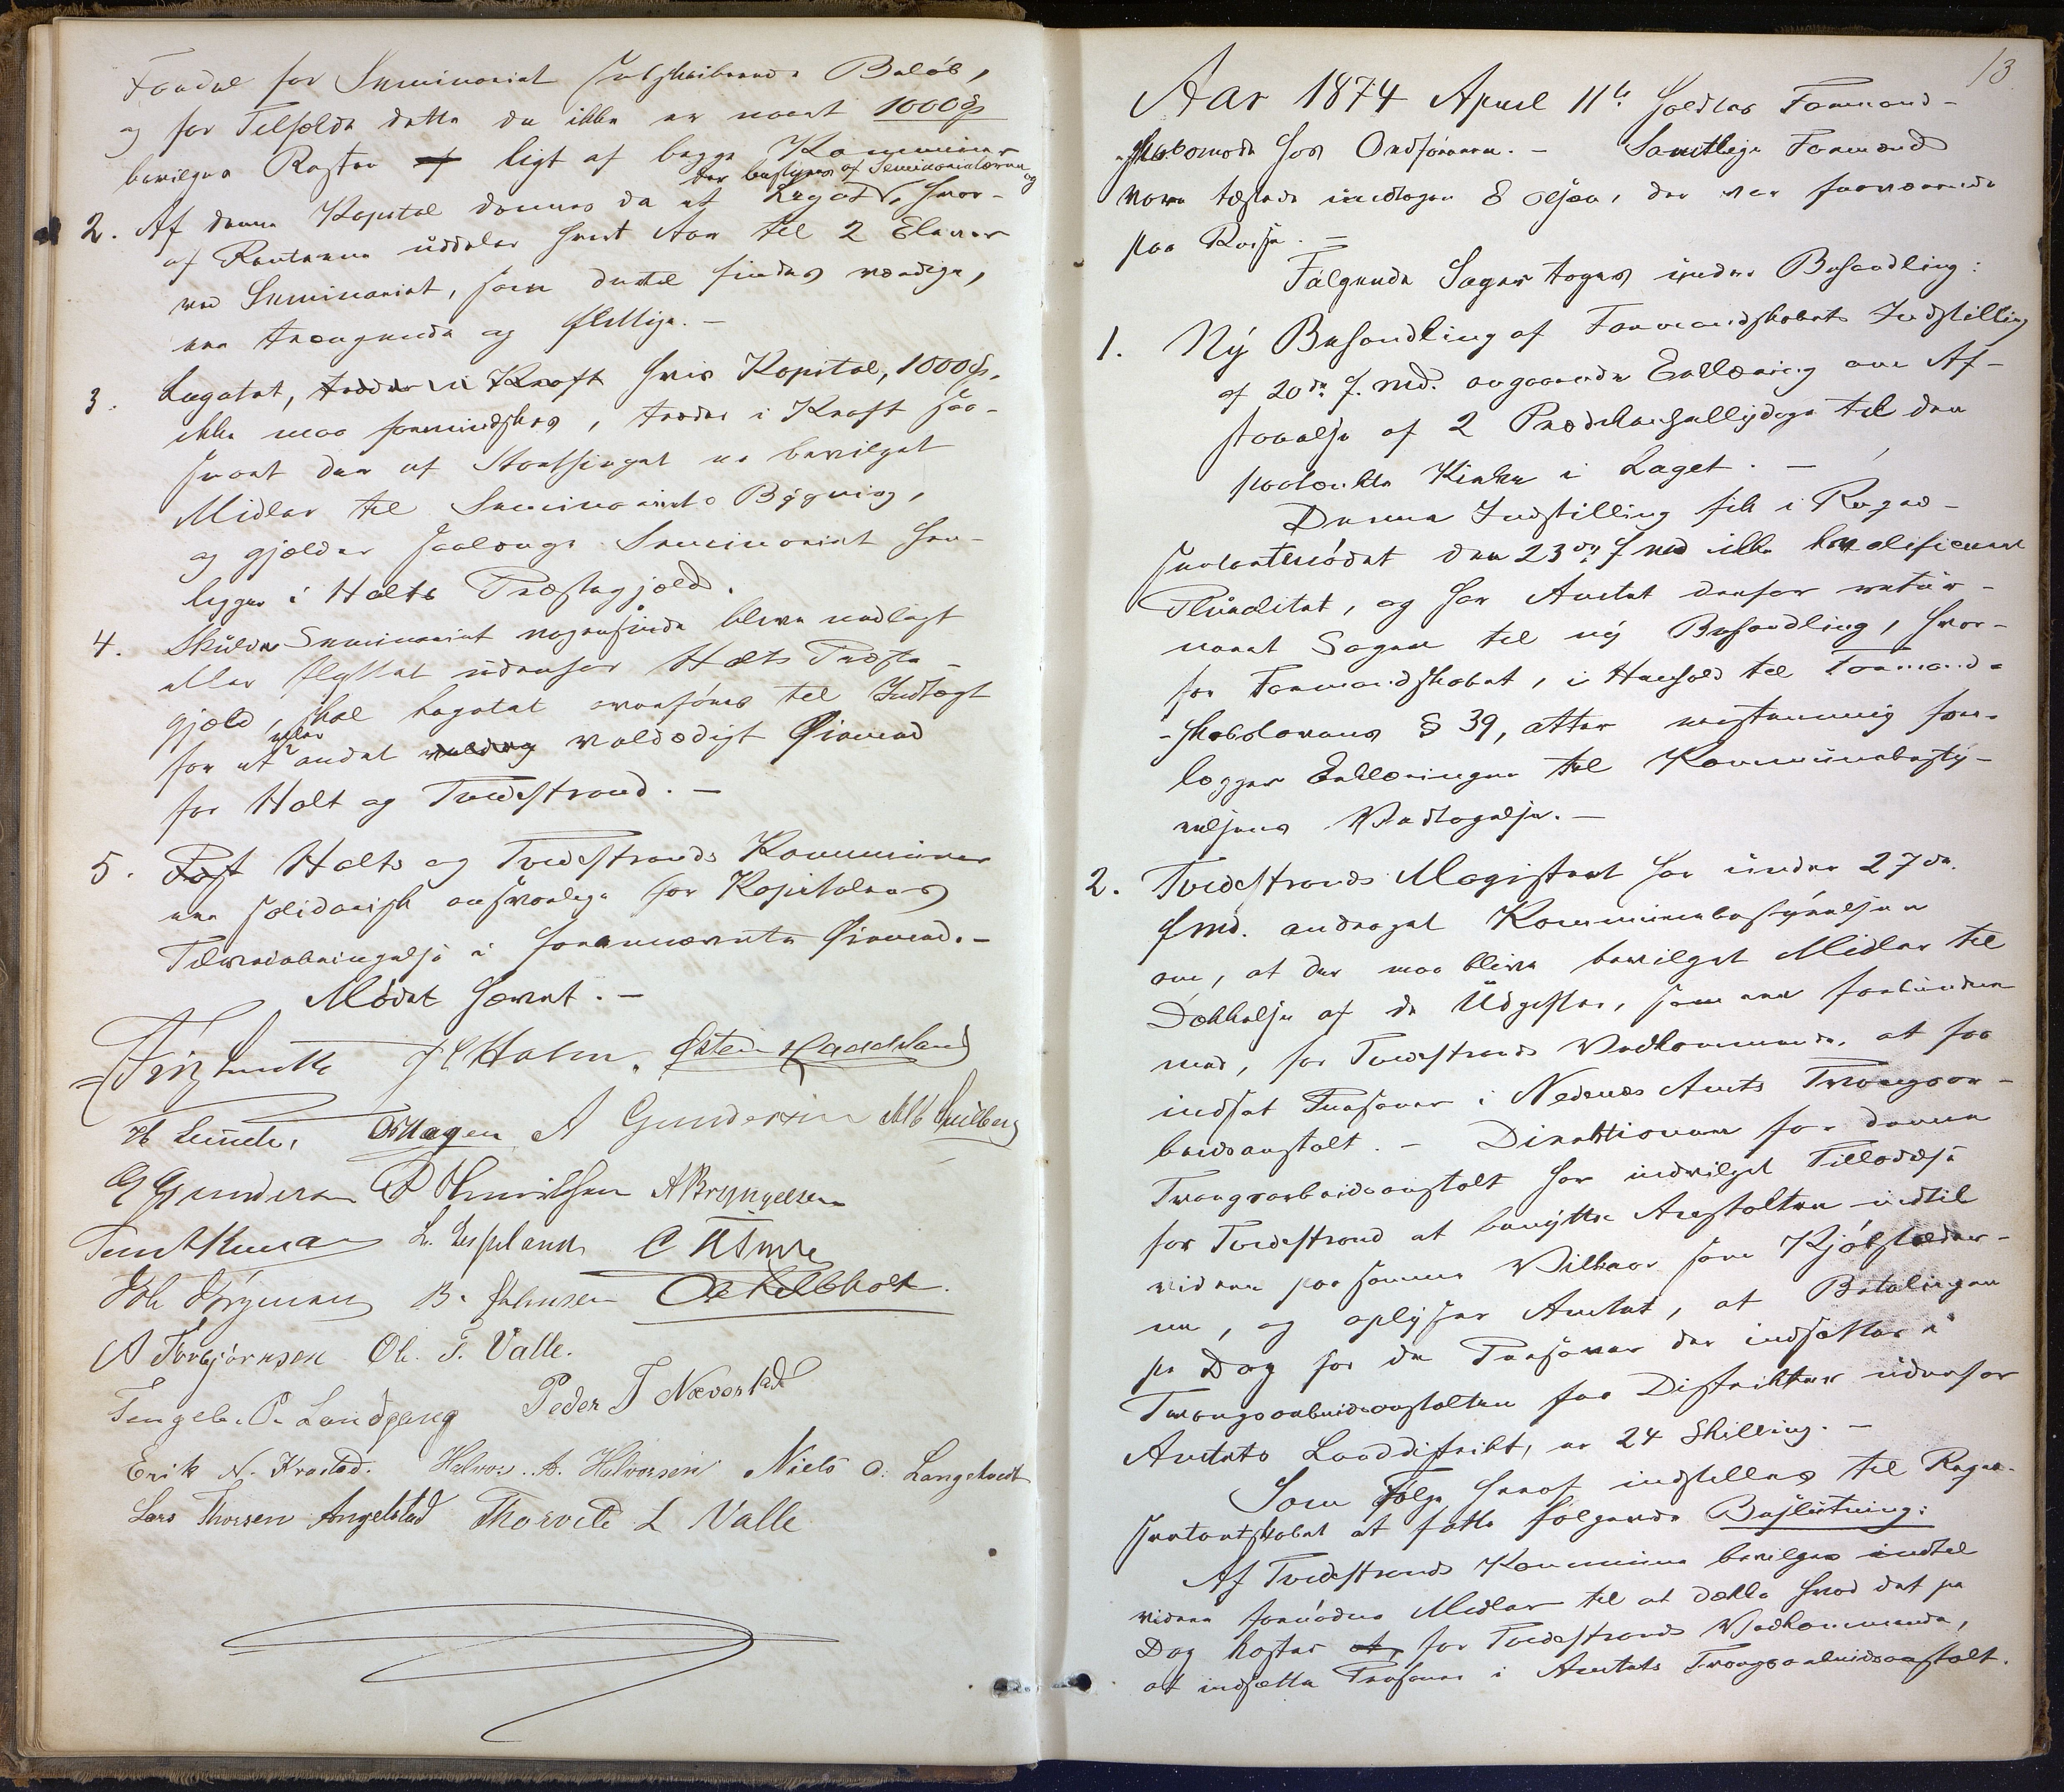 Fondet for Seminariet subskriberede Beløb,
og for Tilfælde dette da ikke er naaet 1000 Spd
bevilges Resten af ligt af begge Kommuner
2. Af denne Kapital dannes da et Legat, der bestyres af Seminarielæreren og hvor-
af Renterne uddeles hvert Aar til 2 Elever
ved Seminariet, som dertil findes værdige,
ere trængende og flittige. —
3. Legatet, træder i Kraft hvis Kapital, 1000 Spd,
ikke maa formindskes, træder i Kraft saa-
snart der af Storthinget er bevilget
Midler til Seminariets Bygning,
og gjælder saalænge Seminariet hen-
ligger i Holts Præstegjæld.
4. Skulde Seminariet nogensinde blive nedlagt
eller flyttet udenfor Holts Præste-
gjæld, skal Legatet overføres til Indtægt
for et eller andet veldædigt Øiemed
for Holt og Tvedestrand. —
5. Holts og Tvedestrands Kommuner
ere solidarisk ansvarlige for Kapitalens
Tilveiebringelse i forannævnte Øiemed. —
Mødet hævet. —
J C Holm. Østen Haadeland
H Lunde, O Hagen A Gundersen
G Gundersen P Henriksen A Bryngelsen
L. Espeland
B. Johnsen
A Torbjørnsen Ol. T. Valle.
Tengel. P. Landgang Peder T Næverstad
Erik N. Krastad. Halvor. A. Halvorsen Niels O. Langetvedt
Lars Thorsen Angelstad Thorvald L Valle
13
Aar 1874 April 11te holdtes Formand-
skabsmøde hos Ordføreren. — Samtlige Formænd
vare tilstede undtagen E Olsen, der var fraværende
paa Reise. —
Følgende Sager toges under Behandling:
1. Ny Behandling af Formandskabets Indstilling
af 20de f. Md. angaaende Erklæring om Af-
staaelse af 2 Prædikenhelligdage til den
paatænkte Kirke i Laget. —
Denne Indstilling fik i Repræ-
sentantmødet den 23de f Md ikke kvalificeret
Pluralitet, og har Amtet derfor retur-
neret Sagen til ny Behandling, hvor-
for Formandskabet, i Henhold til Formand-
skabslovens § 39, atter enstemmig fore-
lægger Erklæringen til Kommunebesty-
relsens Vedtagelse. —
2. Tvedestrands Magistrat har under 27de
f Md. andraget Kommunebestyrelsen
om, at der maa blive bevilget Midler til
Dækkelse af de Udgifter, som ere forbundne
med, for Tvedestrands Vedkommende, at faa
indsat Personer i Nedenæs Amts Tvangsar-
beidsanstalt. — Direktionen for denne
Tvangsarbeidsanstalt har indvilget Tilladelse
for Tvedestrand at benytte Anstalten indtil
videre paa samme Vilkaar som Kjøbstæder-
ne, og oplyser Amtet, at Betalingen
pr Dag for de Personer der indsættes i
Tvangsarbeidsanstalten fra Distrikter udenfor
Amtets Landdistrikt, er 24 Skilling. —
Som Følge heraf indstilles til Repræ-
sentantskabet at fatte følgende Beslutning:
Af Tvedestrands Kommune bevilges indtil
videre fornødne Midler til at dække hvad det pr
Dag koster at, for Tvedestrands Vedkommende,
at indsætte Personer i Amtets Tvangsarbeidsanstalt.